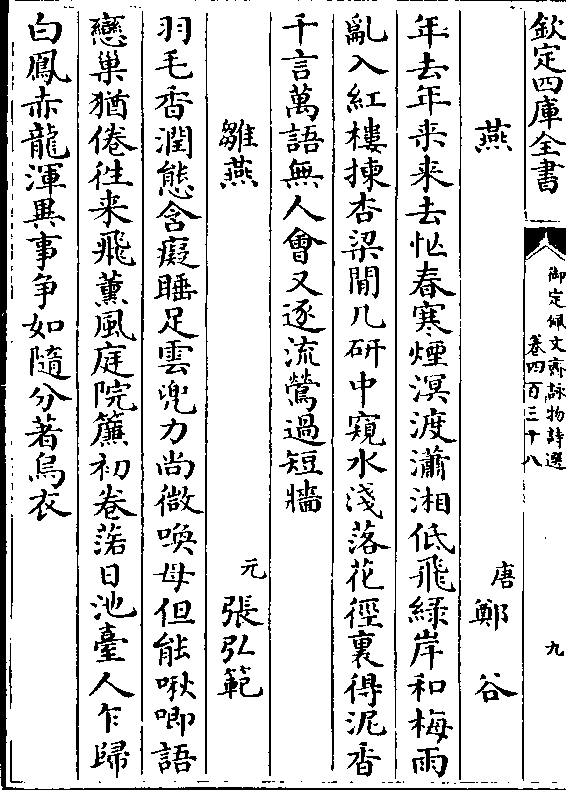 欽定四庫全書
御定佩文齋詠物詩選
卷四百三十八
九
燕
唐
鄭谷
年去年来来去忙春寒煙溟渡瀟湘低飛緑岸和梅雨
亂入紅樓揀杏梁閒几硏中窺水淺落花徑裏得泥香
千言萬語無人會又逐流鶯過短牆
雛燕
元
張弘範
羽毛香潤態含癡睡足雲兜力尚微喚母但能啾唧語
戀巢猶倦往来飛薰風庭院簾初卷落日池臺人乍歸
白鳳赤龍渾異事争如隨分著烏衣